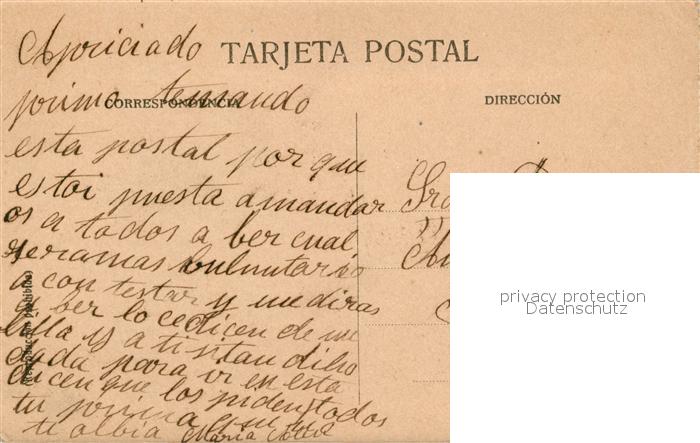 Apriciado
TARJETA POSTAL
primo temando
CORRESPONDENCIA
DIRECCIÓN
esta postal por que
estoi puesta amandar
os a todos a ber cual
seramas buluntario
a contestar y me diras
a ber lo cedicen de mi
ella y a ti
cada para ir en esta
dicen que los piden todos
tu prima
te albia Maria
Sr
Reproducción prohibida
privacy protection
Datenschutz